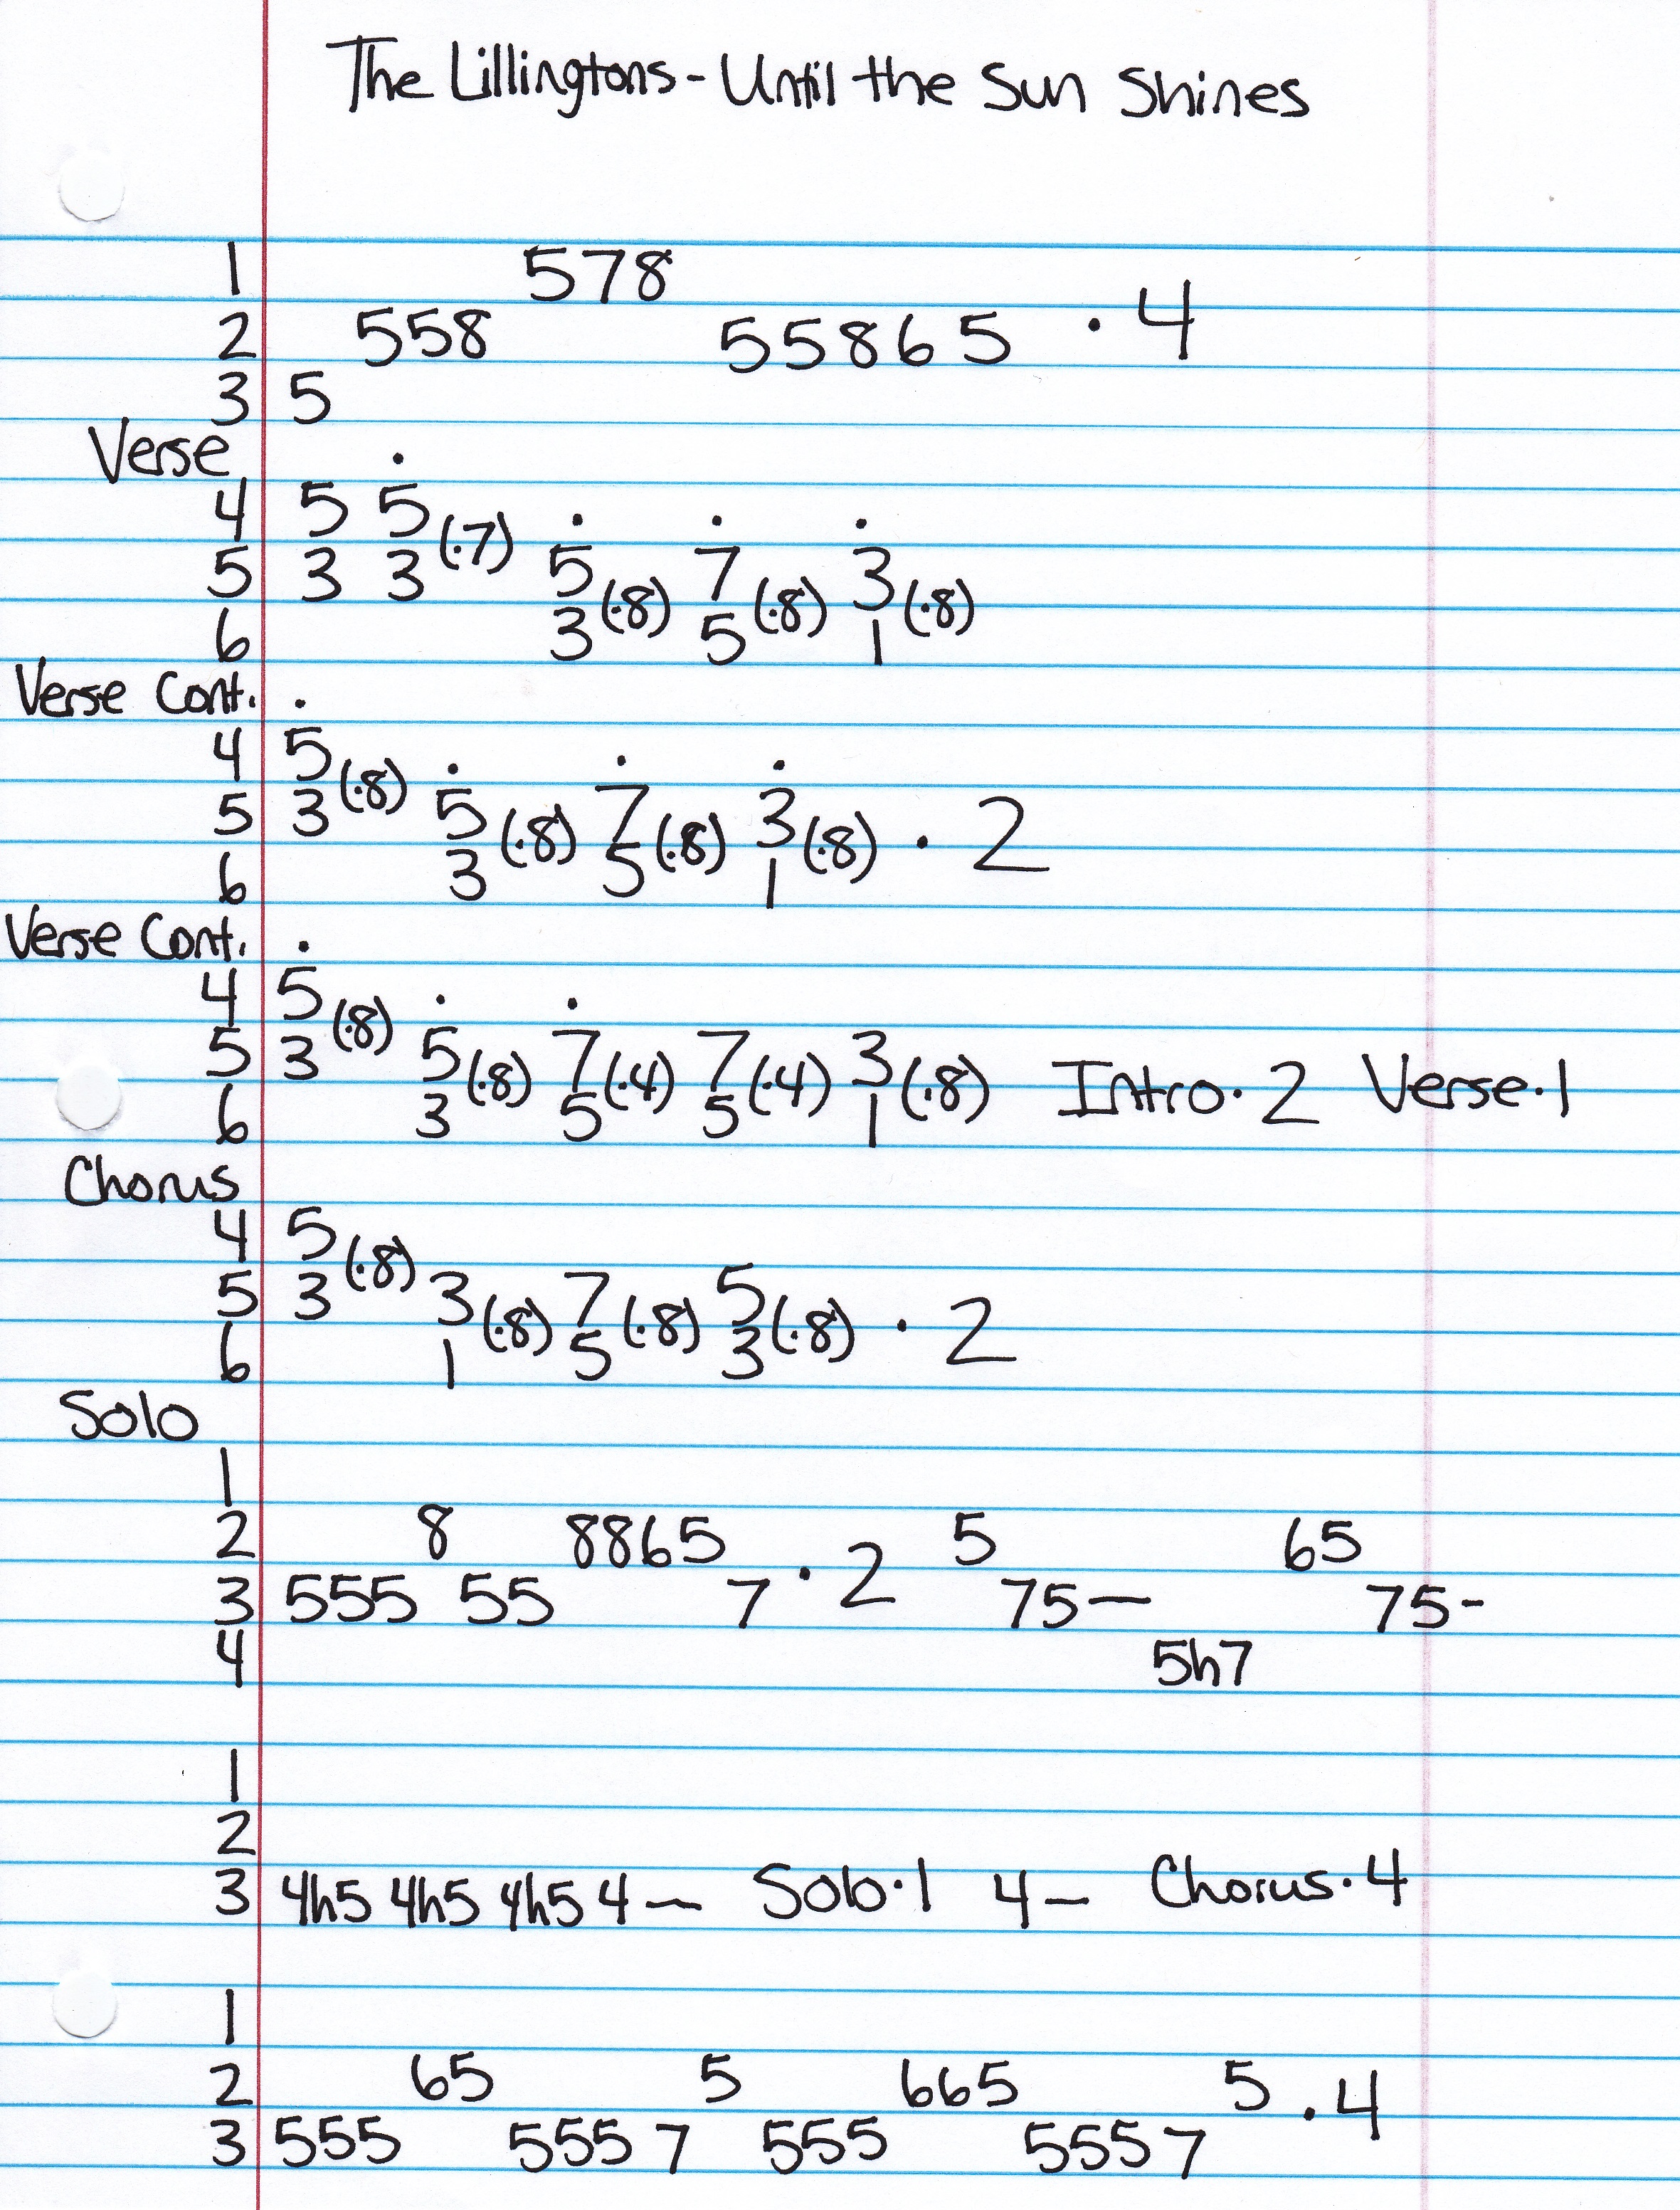 The Lillingtons - Until the Sun Shines
1 578
2 558 55865 · 4
3 5
Verse ·
4 5 5 (·7) · · ·
5 3 3 5 (·8) 7 (·8) 3 (·8)
6 3 5 1
Verse Cont. ·
4 5 (·8) · · ·
5 3 5 (·8) 7 (·8) 3 (·8) · 2
6 3 5 1
Verse Cont. ·
4 5 (·8) · ·
5 3 5 (·8) 7 (·4) 7 (·4) 3 (·8) Intro · 2 Verse · 1
6 3 5 5 1
Chorus
4 5 (·8)
5 3 3 (·8) 7 (·8) 5 (·8) · 2
6 1 5 3
Solo
1
2 8 8865 · 2 5 65
3 555 55 7 75— 75-
4 5h7
1
2
3 4h5 4h5 4h5 4— Solo·1 4— Chorus·4
1
2 65 5 665 5 · 4
3 555 555 7 555 555 7